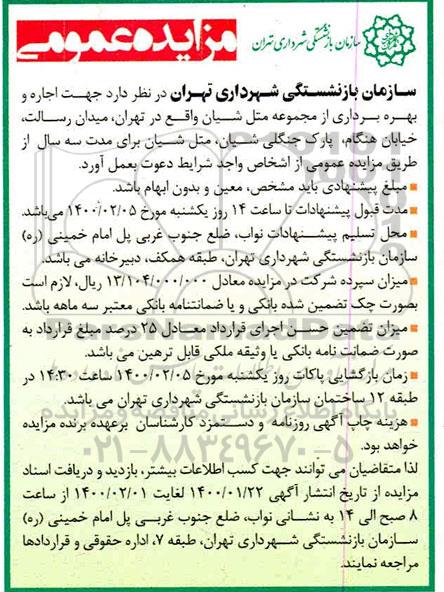 سازمان بازنشستگی شهرداری تهران
مزایده عمومی
سازمان بازنشستگی شهرداری تهران در نظر دارد جهت اجاره و
بهره برداری از مجموعه متل شیان واقع در تهران، میدان رسالت،
خیابان هنگام، پارک جنگلی شیان، متل شیان برای مدت سه سال از
طریق مزایده عمومی از اشخاص واجد شرایط دعوت بعمل آورد.
مبلغ پیشنهادی باید مشخص، معین و بدون ابهام باشد.
مدت قبول پیشنهادات تا ساعت ۱۴ روز یکشنبه مورخ ۱۴۰۰/۰۲/۰۵ می‌باشد.
محل تسلیم پیشنهادات نواب، ضلع جنوب غربی پل امام خمینی (ره)
سازمان بازنشستگی شهرداری تهران، طبقه همکف، دبیرخانه می باشد.
میزان سپرده شرکت در مزایده معادل ۱۳/۱۰۴/۰۰۰/۰۰۰ ریال، لازم است
بصورت چک تضمین شده بانکی و یا ضمانتنامه بانکی معتبر سه ماهه باشد.
میزان تضمین حسن اجرای قرارداد معادل ۲۵ درصد مبلغ قرارداد به
صورت ضمانت نامه بانکی یا وثیقه ملکی قابل ترهین می باشد.
زمان بازگشایی پاکات روز یکشنبه مورخ ۱۴۰۰/۰۲/۰۵ ساعت ۱۴:۳۰ در
طبقه ۱۲ ساختمان سازمان بازنشستگی شهرداری تهران می باشد.
هزینه چاپ آگهی روزنامه و دستمزد کارشناسان برعهده برنده مزایده
خواهد بود.
لذا متقاضیان می توانند جهت کسب اطلاعات بیشتر، بازدید و دریافت اسناد
مزایده از تاریخ انتشار آگهی ۱۴۰۰/۰۱/۲۲ لغایت ۱۴۰۰/۰۲/۰۱ از ساعت
۸ صبح الی ۱۴ به نشانی نواب، ضلع جنوب غربی پل امام خمینی (ره)
سازمان بازنشستگی شهرداری تهران، طبقه ۷، اداره حقوقی و قراردادها
مراجعه نمایند.
پایگاه اطلاع رسانی مناقصه و مزایده
۰۲۱-۸۸۳۴۹۶۷۰-۵